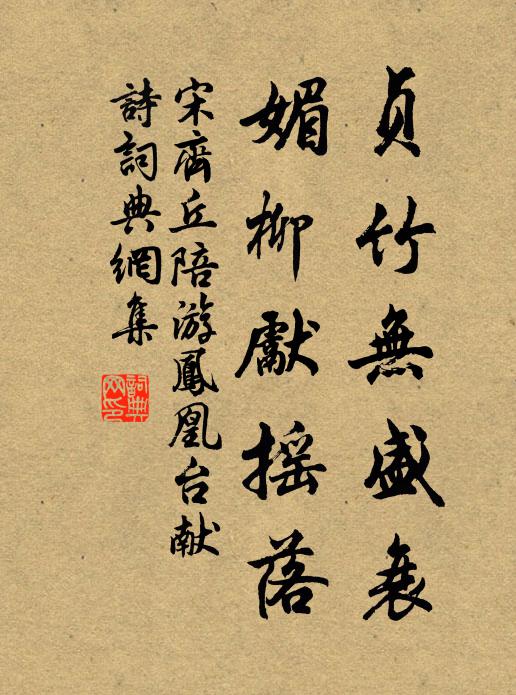 贞竹無盛衰
媚柳獻摇落
宋齊丘陪游鳳凰台献
詩詞典網集
詞典網印